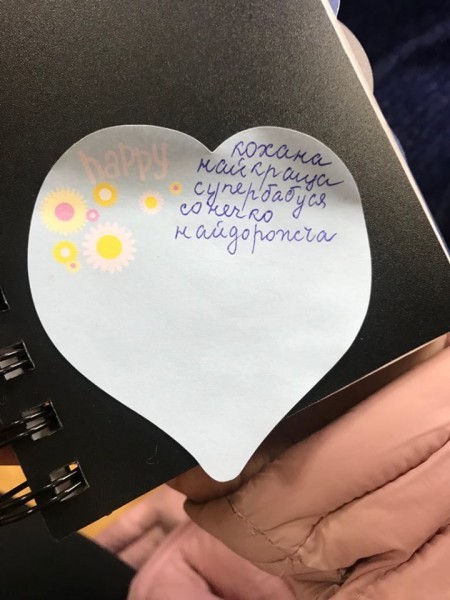 happy
кохана
найкраща
супербабуся
сонечко
найдорожча